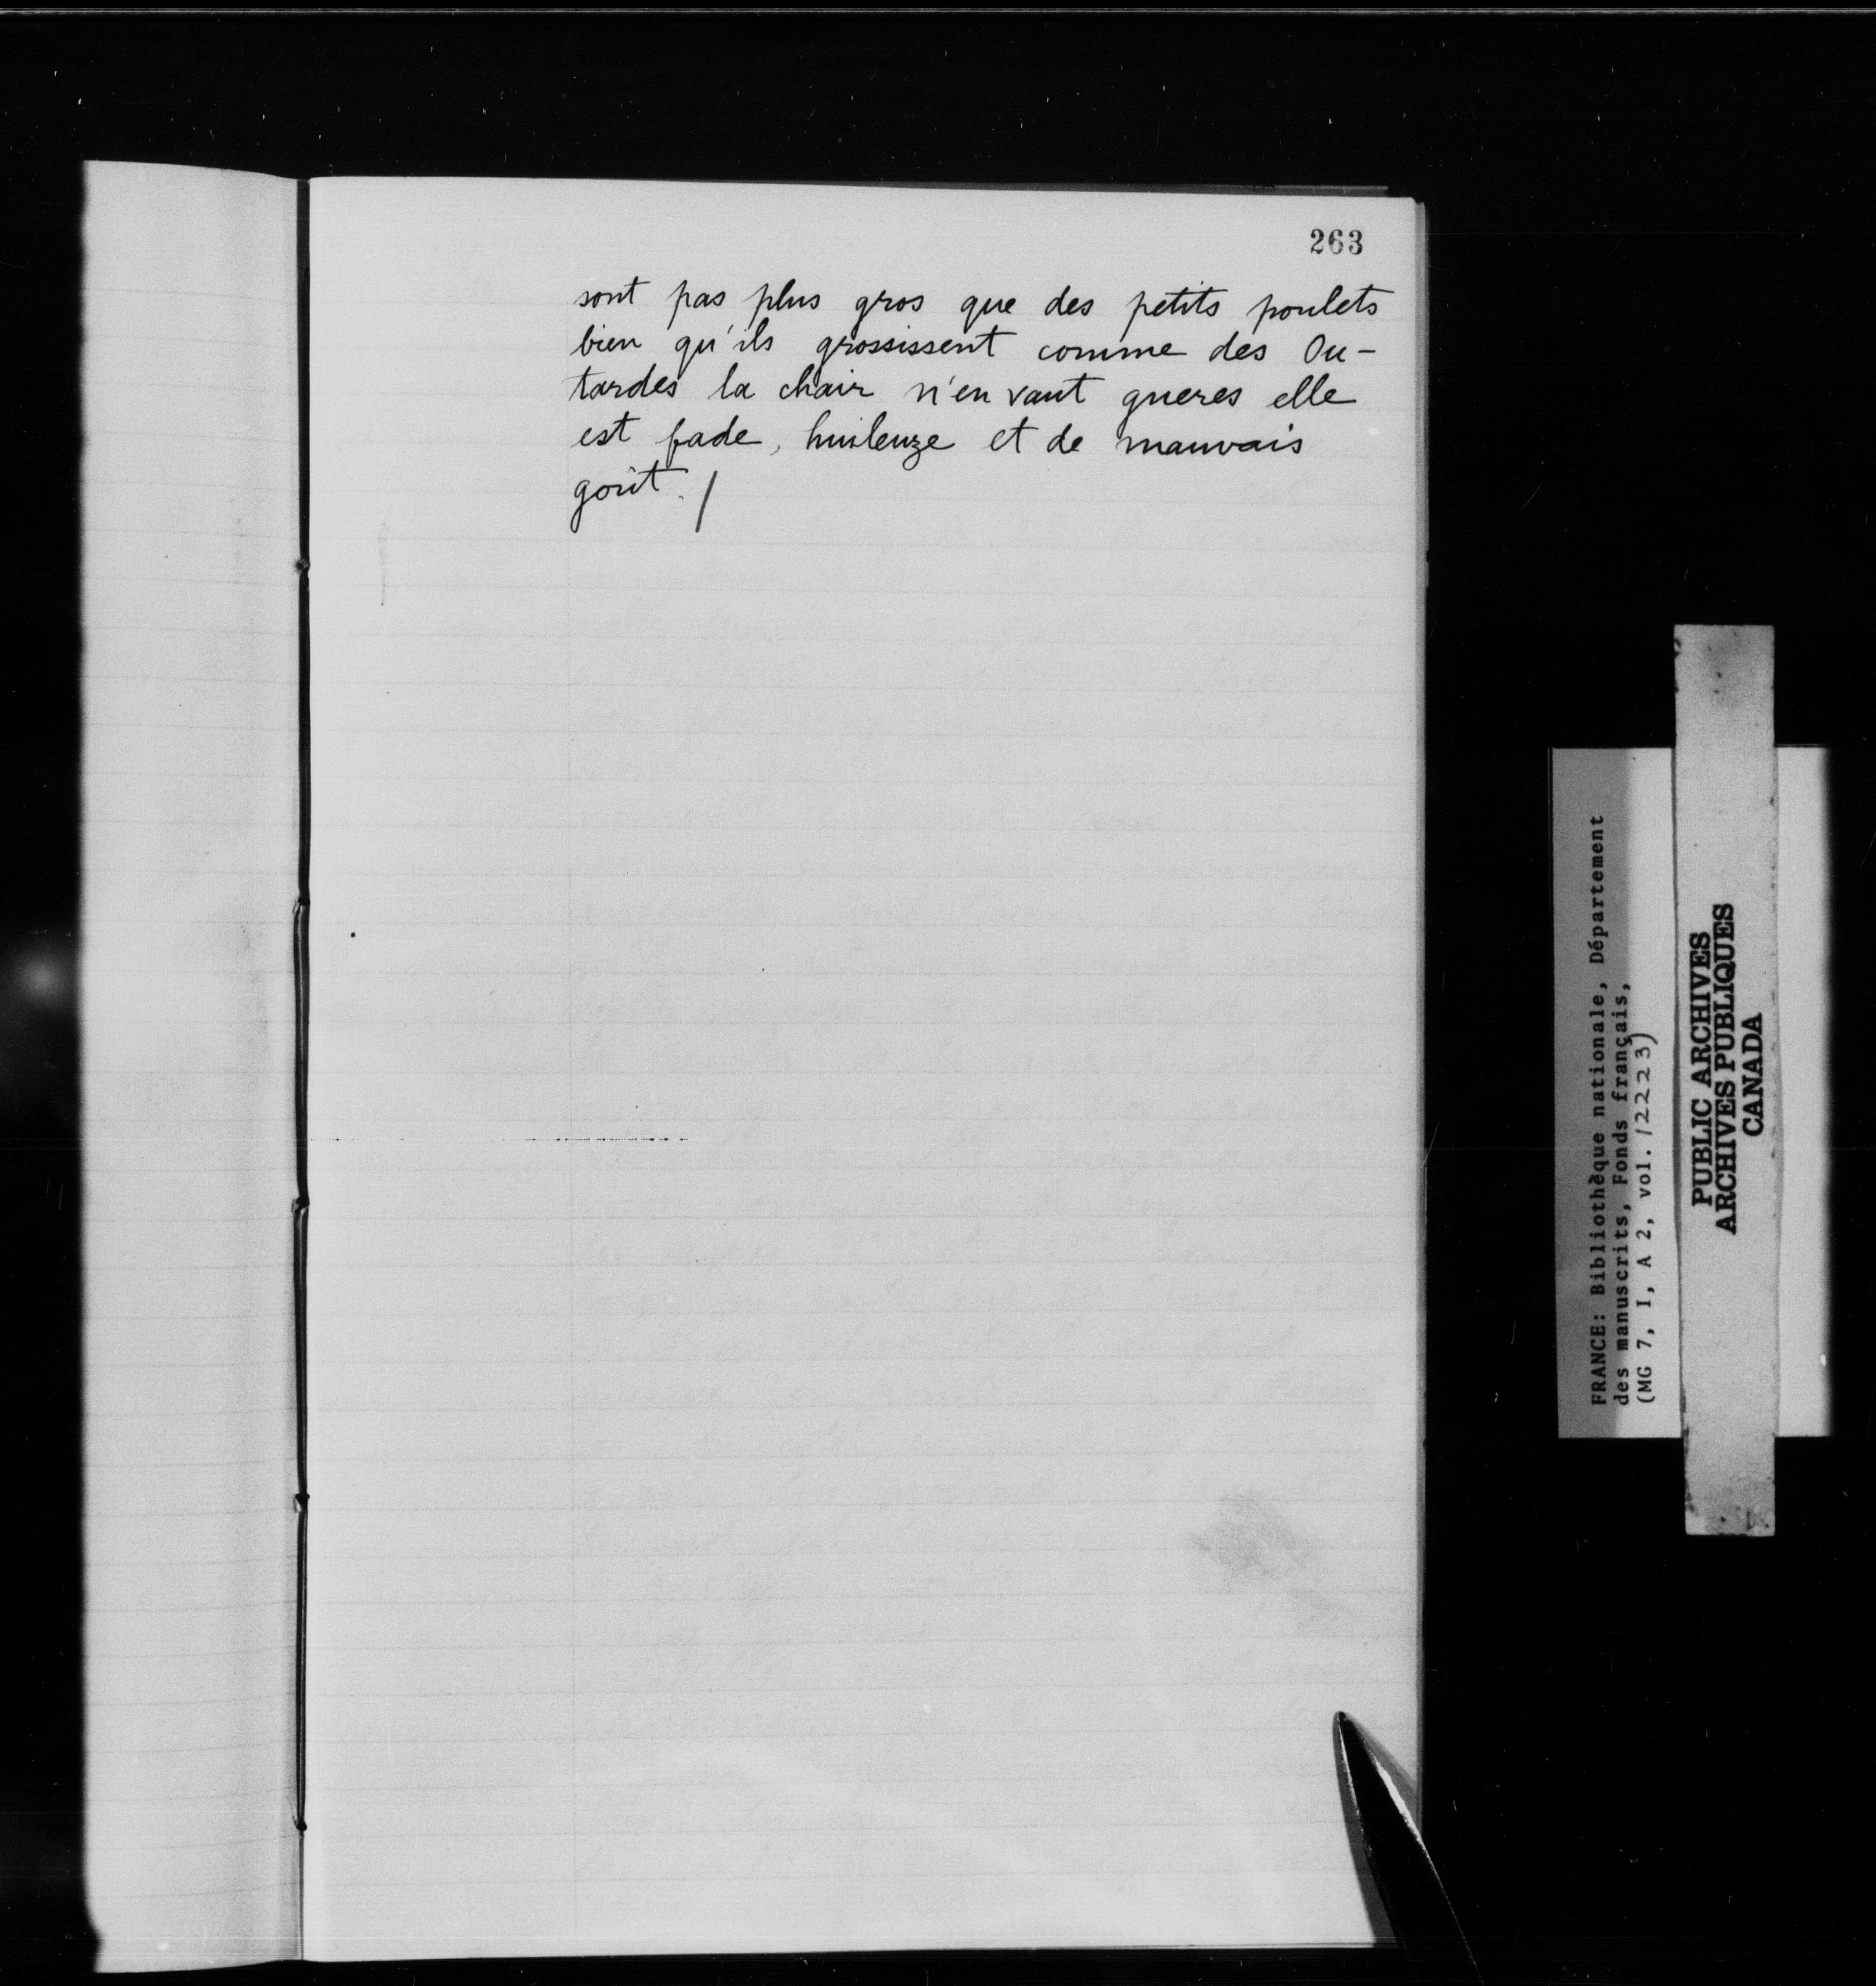 263
sont pas plus gros que des petits poulets
bien qu'ils grossissent comme des Ou-
tardes la chair n'en vaut gueres elle
est fade, huileuze et de mauvais
goût. /
FRANCE: Bibliothèque nationale, Département
des manuscrits, Fonds français,
(MG 7, I, A 2, vol. 12223)
PUBLIC ARCHIVES
ARCHIVES PUBLIQUES
CANADA